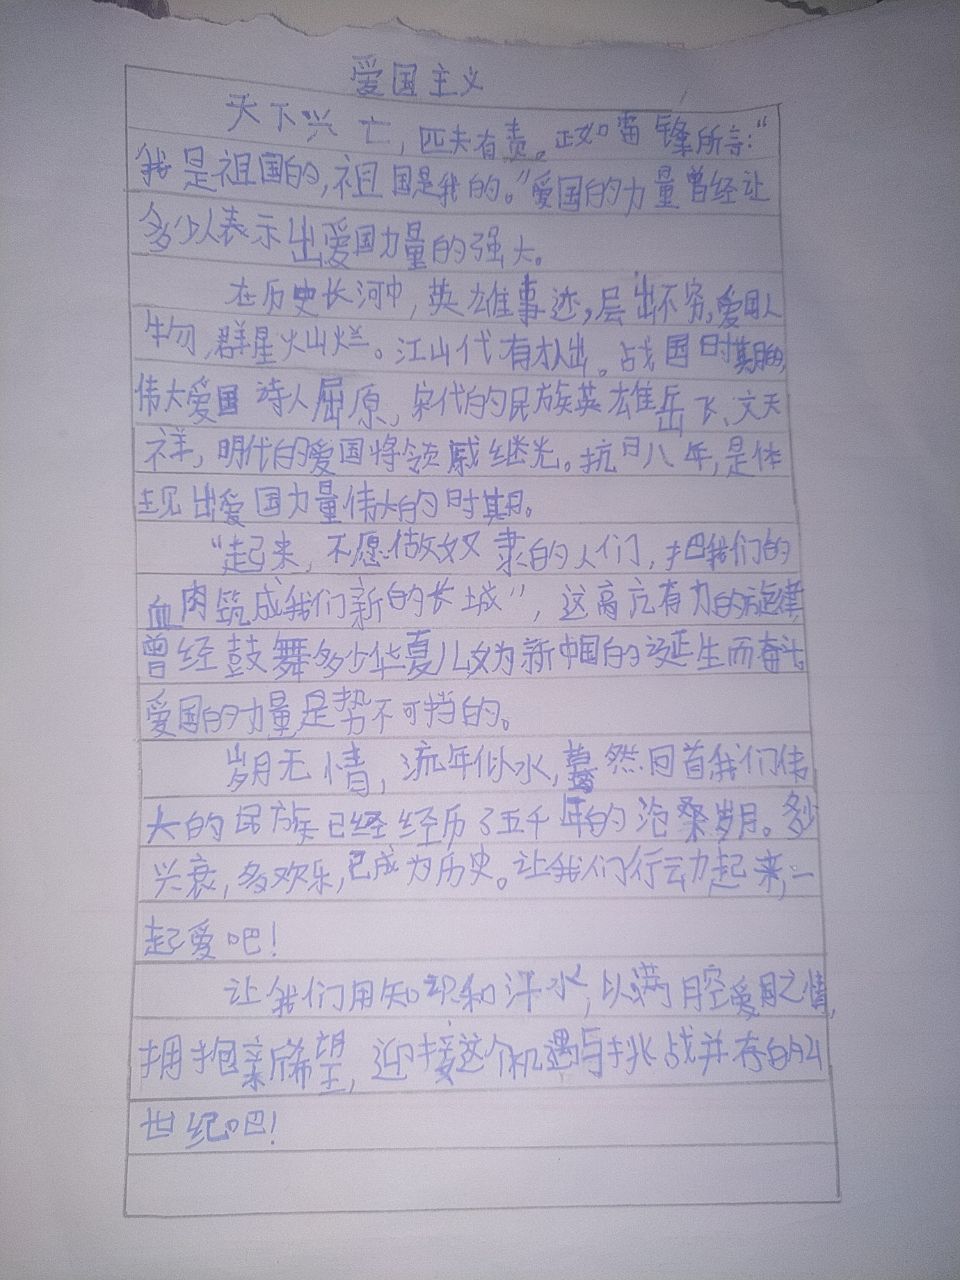 爱国主义
天下兴亡，匹夫有责。正如雷锋所言：“
我是祖国的，祖国是我的。”爱国的力量曾经让
多少人表示出爱国力量的强大。
在历史长河中，英雄事迹，层出不穷，爱国人
物，群星灿烂。江山代有才人出。战国时期的
伟大爱国诗人屈原，宋代的民族英雄岳飞、文天
祥，明代的爱国将领戚继光。抗日八年，是体
现出爱国力量伟大的时期。
“起来，不愿做奴隶的人们，把我们的
血肉筑成我们新的长城”，这高亢有力的旋律
曾经鼓舞多少华夏儿女为新中国的诞生而奋斗
爱国的力量是势不可挡的。
岁月无情，流年似水，蓦然回首我们伟
大的民族已经经历了五千年的沧桑岁月。多少
兴衰，多欢乐，已成为历史。让我们行动起来，一
起爱吧！
让我们用知识和汗水，以满腔爱国之情，
拥抱新希望，迎接这个机遇与挑战并存的21
世纪吧！